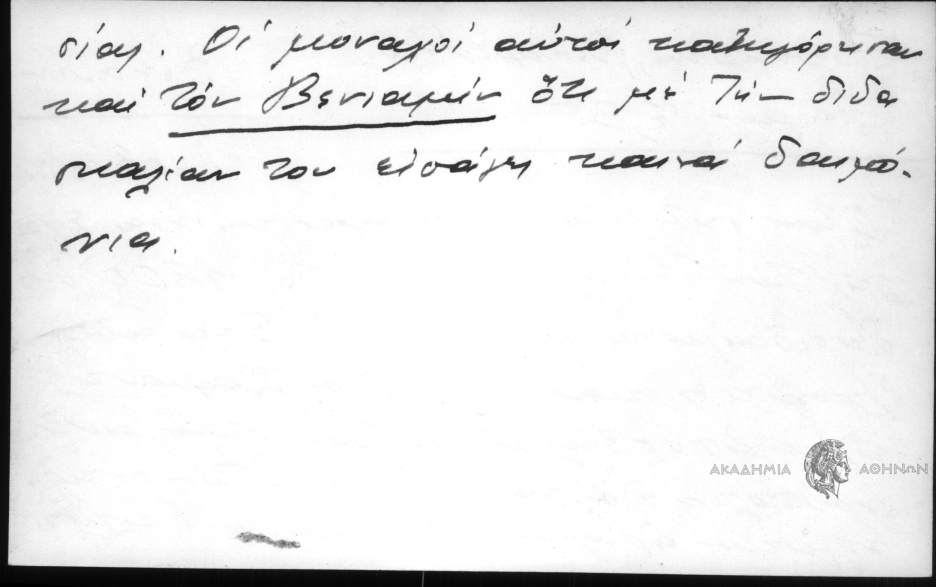 σίας. Οἱ μοναχοί αὐτοί κατηγόρησαν
καί τόν Βενιαμίν ὅτι μέ τήν διδα
σκαλίαν του εἰσάγει καινά δαιμό-
νια.
ΑΚΑΔΗΜΙΑ ΑΘΗΝΩΝ